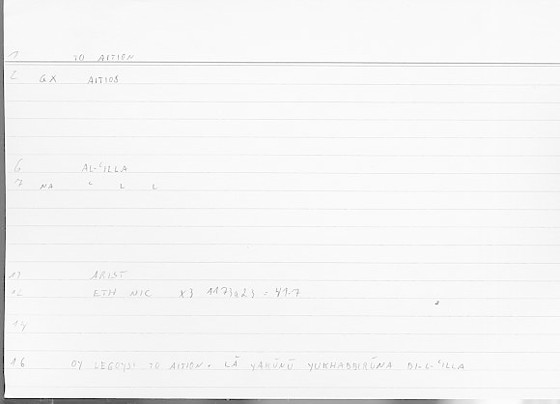 1 TO AITION
2 GX AITIOS
6 AL-ʿILLA
7 MA ʿ L L
11 ARIST
12 ETH NIC 1173a23 = 417
14
16 OY LEGOYSI TO AITION. LĀ YAKŪNŪ YUKHABBIRŪNA BI-L-ʿILLA